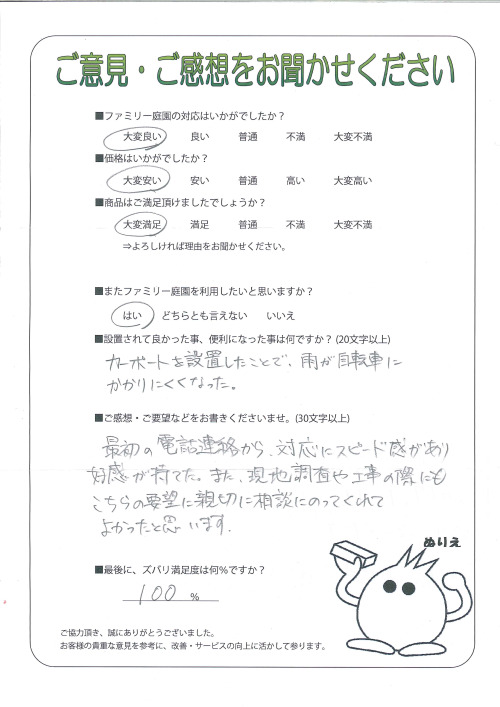 ご意見・ご感想をお聞かせください
■ファミリー庭園の対応はいかがでしたか？
大変良い 良い 普通 不満 大変不満
■価格はいかがでしたか？
大変安い 安い 普通 高い 大変高い
■商品はご満足頂けましたでしょうか？
大変満足 満足 普通 不満 大変不満
⇒よろしければ理由をお聞かせください。
■またファミリー庭園を利用したいと思いますか？
はい どちらとも言えない いいえ
■設置されて良かった事、便利になった事は何ですか？(20文字以上)
カーポートを設置したことで、雨が自転車に
かかりにくくなった。
■ご感想・ご要望などをお書きくださいませ。(30文字以上)
最初の電話連絡から、対応にスピード感があり
好感が持てた。また、現地調査や工事の際にも
こちらの要望に親切に相談にのってくれて
よかったと思います.
ぬりえ
■最後に、ズバリ満足度は何%ですか？
100 %
ご協力頂き、誠にありがとうございました。
お客様の貴重な意見を参考に、改善・サービスの向上に活かして参ります。